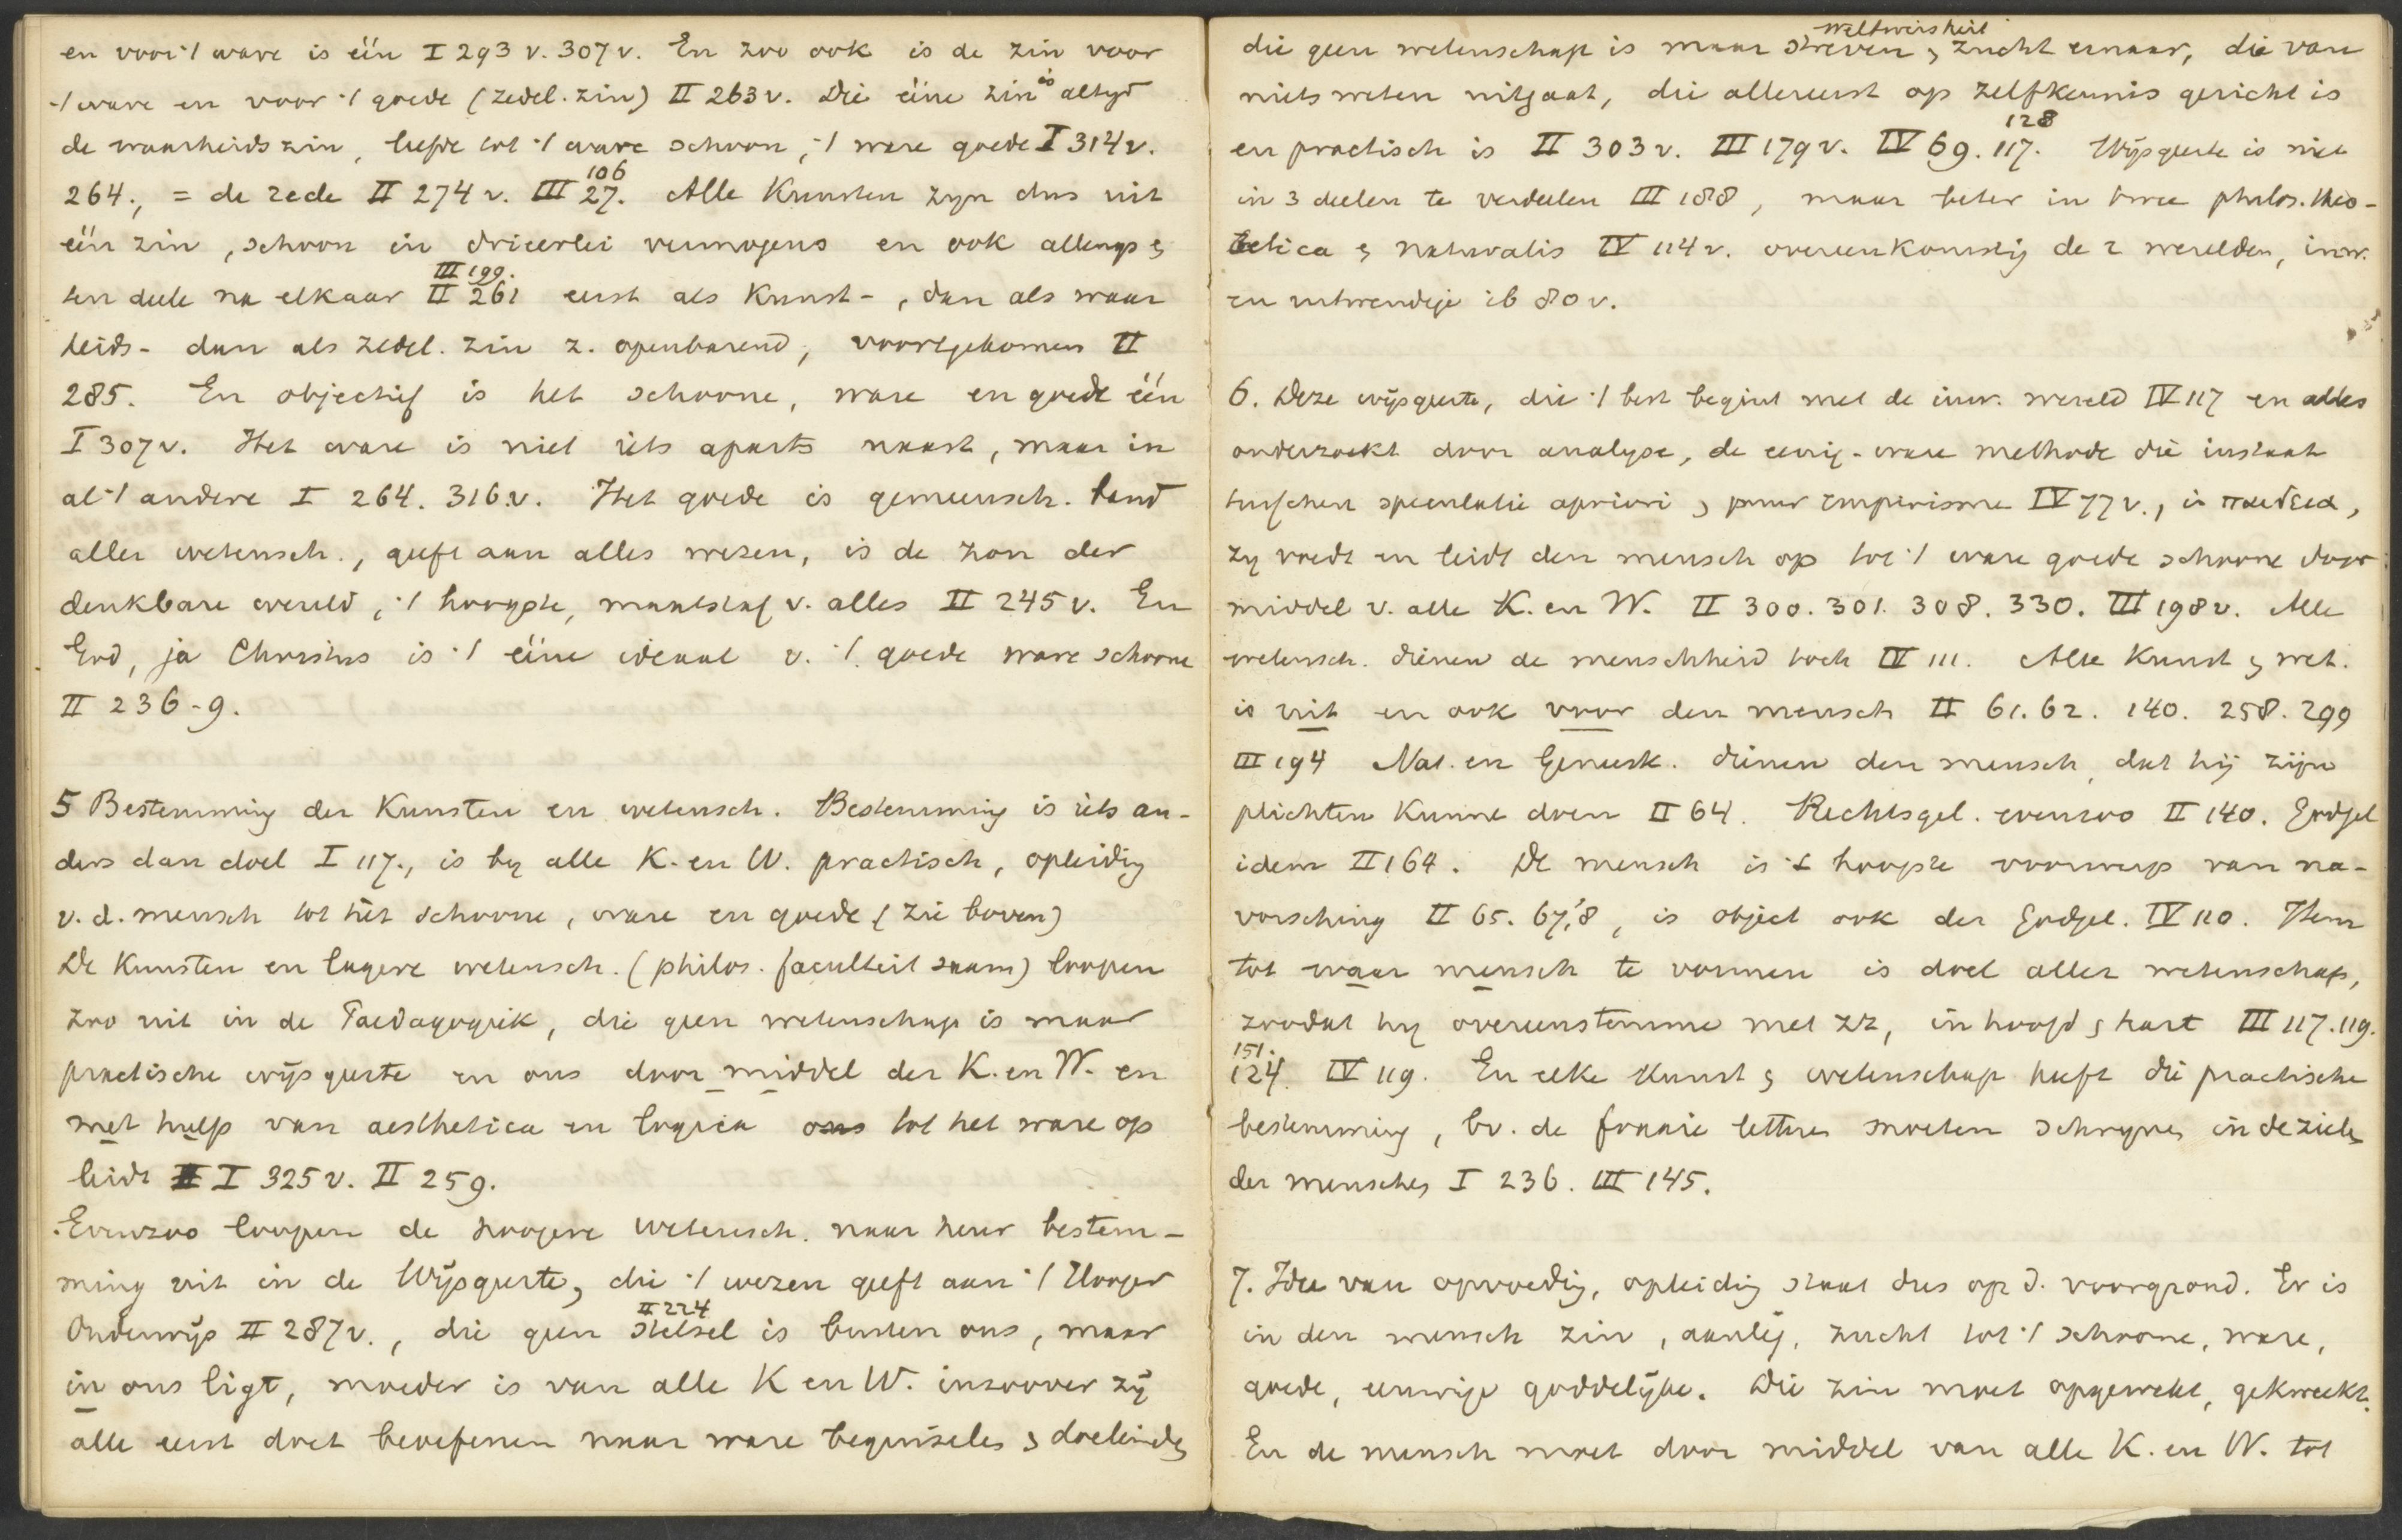 en voor 't ware is één I 293 v. 307 v. En zoo ook is de zin voor
't ware en voor 't goede (zedel. zin) II 263 v. Die ééne zin is altyd
de waarheidszin, liefde tot 't ware schoon, 't ware goede I 314 v.
264., = de rede II 274 v. III 27. 106 Alle Kunsten zyn dus uit
één zin, schoon in drieerlei vermogens en ook allengs &
ten deele na elkaar II 261 III 199. eerst als Kunst-, dan als waar
heids- dan als zedel. zin z. openbarend, voortgekomen II
285. En objectief is het schoone, ware en goede één
I 307 v. Het ware is niet iets aparts naast, maar in
al 't andere I 264. 316 v. Het goede is gemeensch. band
aller wetensch., geeft aan alles wezen, is de zon der
denkbare wereld, 't hoogste, maatstaf v. alles II 245 v. En
God, ja Christus is 't ééne ideaal v. 't goede ware schoone
II 236-9.
5 Bestemming der Kunsten en wetensch. Bestemming is iets an-
ders dan doel I 117., is by alle K. en W. practisch, opleidig
v. d. mensch tot hèt schoone, ware en goede (zie boven)
De Kunsten en lagere wetensch. (philos. faculteit saam) loopen
zoo uit in de Paedagogiek, die geen wetenschap is maar
practische wijsgeerte en ons door middel der K. en W. en
met hulp van aesthetica en logica ons tot het ware op
leidt I 325 v. II 259.
Evenzoo loopen de hoogere wetensch. naar heur bestem-
ming uit in de Wijsgeerte, die 't wezen geeft aan 't Hooger
Onderwijs II 287 v., die geen stelsel II 224 is buiten ons, maar
in ons ligt, moeder is van alle K en W. inzoover zij
alle eerst doet beoefenen naar ware beginselen & doeleinden
die geen wetenschap is maar streven & zucht ernaar, weltweisheit die van
niets weten uitgaat, die allereerst op zelfkennis gericht is
en practisch is II 303 v. III 179 v. IV 69. 117. 128 Wijsgeerte is niet
in 3 deelen te verdeelen III 188, maar beter in twee philos. theo-
retica & naturalis IV 114 v. overeenkomstig de 2 werelden, inw.
en uitwendige ib 80 v.
6. Deze wijsgeerte, die 't best begint met de inw. wereld IV 117 en alles
onderzoekt door analyse, de eenig-ware methode die instaat
tusschen speculatie apriori & puur empirisme IV 77 v., is παιδεια,
zy voedt en leidt den mensch op tot 't ware goede schoone door
middel v. alle K. en W. II 300. 301. 308. 330. III 198 v. Alle
wetensch. dienen de menschheid toch IV 111. Alle Kunst & wet.
is uit en ook voor den mensch II 61. 62. 140. 258. 299
III 194 Nat. en Geneesk. dienen den mensch, dat hij zijn
plichten kunne doen II 64. Rechtsgel. evenzoo II 140. Godgel
idem II 164. De mensch is 't hoogste voorwerp van na-
vorsching II 65. 67,'8, is object ook der Godgel. IV 120. Hem
tot waar mensch te vormen is doel aller wetenschap,
zoodat hy overeenstemme met zz, in hoofd & hart III 117. 119.
124. 151. IV 119. En elke Kunst & wetenschap heeft die practische
bestemming, bv. de fraaie letteren moeten schryven in de zielen
der menschen I 236. III 145.
7. Idee van opvoedig, opleidig staat dus op d. voorgrond. Er is
in den mensch zin, aanleg, zucht tot 't schoone, ware,
goede, eeuwige goddelijke. Die zin moet opgewekt, gekweekt.
En de mensch moet door middel van alle K. en W. tot